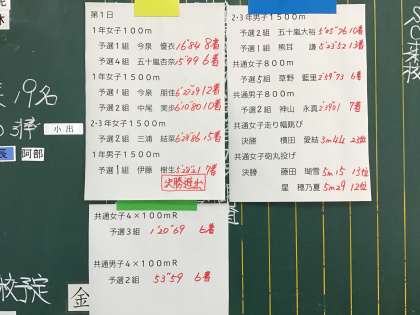 第1日
1年女子100m
予選1組 今泉 優衣 16"84 8着
予選4組 五十嵐杏奈 15"99 6着
1年女子1500m
予選1組 今泉 朋佳
予選2組 中尾 美歩 10着
2・3年女子1500m
予選2組 三浦 結菜 15着
1年男子1500m
予選1組 伊藤 樹生 7着
決勝進出
共通女子4×100mR
予選3組 1'20"69 6着
共通男子4×100mR
予選2組 53"59 6着
2・3年男子1500m
予選2組 五十嵐大裕 5'05"76 10着
予選1組 熊耳 謙 5'23"52 13着
共通女子800m
予選5組 草野 藍里 6着
共通男子800m
予選2組 神山 永真 7着
共通女子走り幅跳び
決勝 横田 愛結 3m44 23位
共通女子砲丸投げ
決勝 藤田 瑚雪 5m15 13位
星 穂乃夏 5m29 12位
19名
小出
阿部
校予定
金